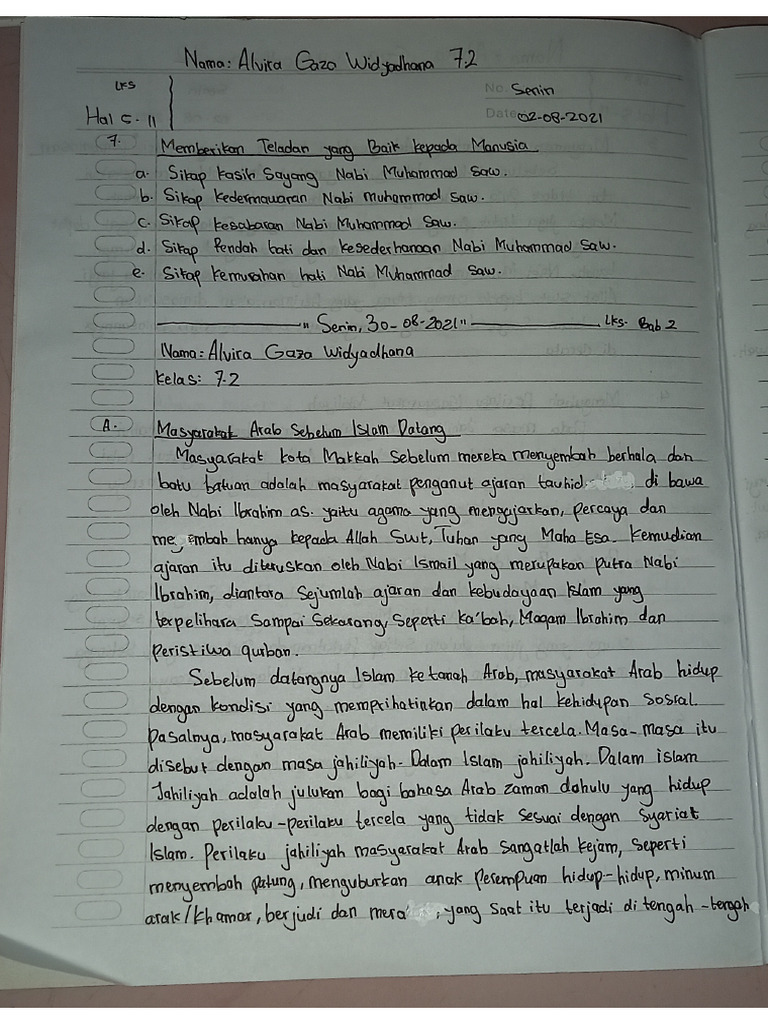 Nama: Alvira Gaza Widyadhana 7.2
LKS
No. Senin
Hal 5-11
Date 02-08-2021
7. Memberikan Teladan yang Baik kepada Manusia
a. Sikap Kasih Sayang Nabi Muhammad Saw.
b. Sikap Kedermawaran Nabi Muhammad Saw.
c. Sikap Kesabaran Nabi Muhammad Saw.
d. Sikap Rendah bati dan Kesederhanaan Nabi Muhammad Saw.
e. Sikap Kemurahan hati Nabi Muhammad Saw.
"Senin, 30-08-2021" LKs. Bab 2
Nama: Alvira Gaza Widyadhana
Kelas: 7.2
A. Masyarakat Arab Sebelum Islam Datang
Masyarakat kota Makkah Sebelum mereka menyembah berhala dan
batu batuan adalah masyarakat penganut ajaran tauhid di bawa
oleh Nabi Ibrahim as. yaitu agama yang mengajarkan, percaya dan
me embah hanya kepada Allah Swt, Tuhan yang Maha Esa. Kemudian
ajaran itu diteruskan oleh Nabi Ismail yang merupakan putra Nabi
Ibrahim, diantara Sejumlah ajaran dan kebudayaan Islam yang
terpelihara Sampai Sekarang, Seperti ka'bah, Maqam Ibrahim dan
Peristiwa qurban.
Sebelum datangnya Islam ke tanah Arab, masyarakat Arab hidup
dengan kondisi yang memprihatinkan dalam hal kehidupan sosial.
Pasalnya, masyarakat Arab memiliki perilaku tercela. Masa-masa itu
disebut dengan masa jahiliyah. Dalam Islam jahiliyah. Dalam islam
Jahiliyah adalah julukan bagi bahasa Arab zaman dahulu yang hidup
dengan perilaku-perilaku tercela yang tidak sesuai dengan Syariat
Islam. Perilaku jahiliyah masyarakat Arab Sangatlah kejam, seperti
menyembah patung, menguburkan anak perempuan hidup-hidup, minum
arak/khamar, berjudi dan mera , yang saat itu terjadi di tengah-tengah